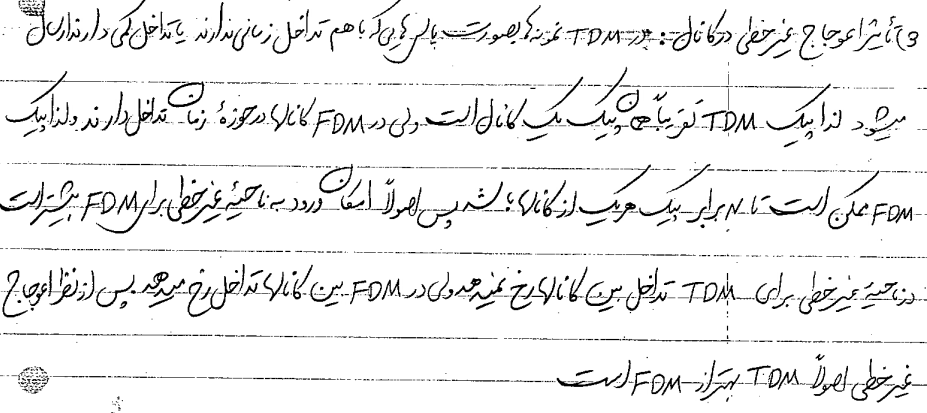 3) تأثیر اعوجاج غیرخطی در کانال : در TDM نمونه‌ها بصورت پالس‌هایی که با هم تداخل زمانی ندارند یا تداخل کمی دارند ارسال
میشود لذا پیک TDM تقریباً همان پیک یک کانال است ولی در FDM کانالها در حوزهٔ زمان تداخل دارند ولذا پیک
FDM ممکن است تا برابر پیک هریک از کانالها باشد پس اصولاً امکان ورود به ناحیهٔ غیرخطی برای FDM بیشتر است
در ناحیهٔ غیرخطی برای TDM تداخل بین کانالها رخ نمیدهد ولی در FDM بین کانالها تداخل رخ میدهد پس از نظر اعوجاج
غیرخطی اصولاً TDM بهتر از FDM است